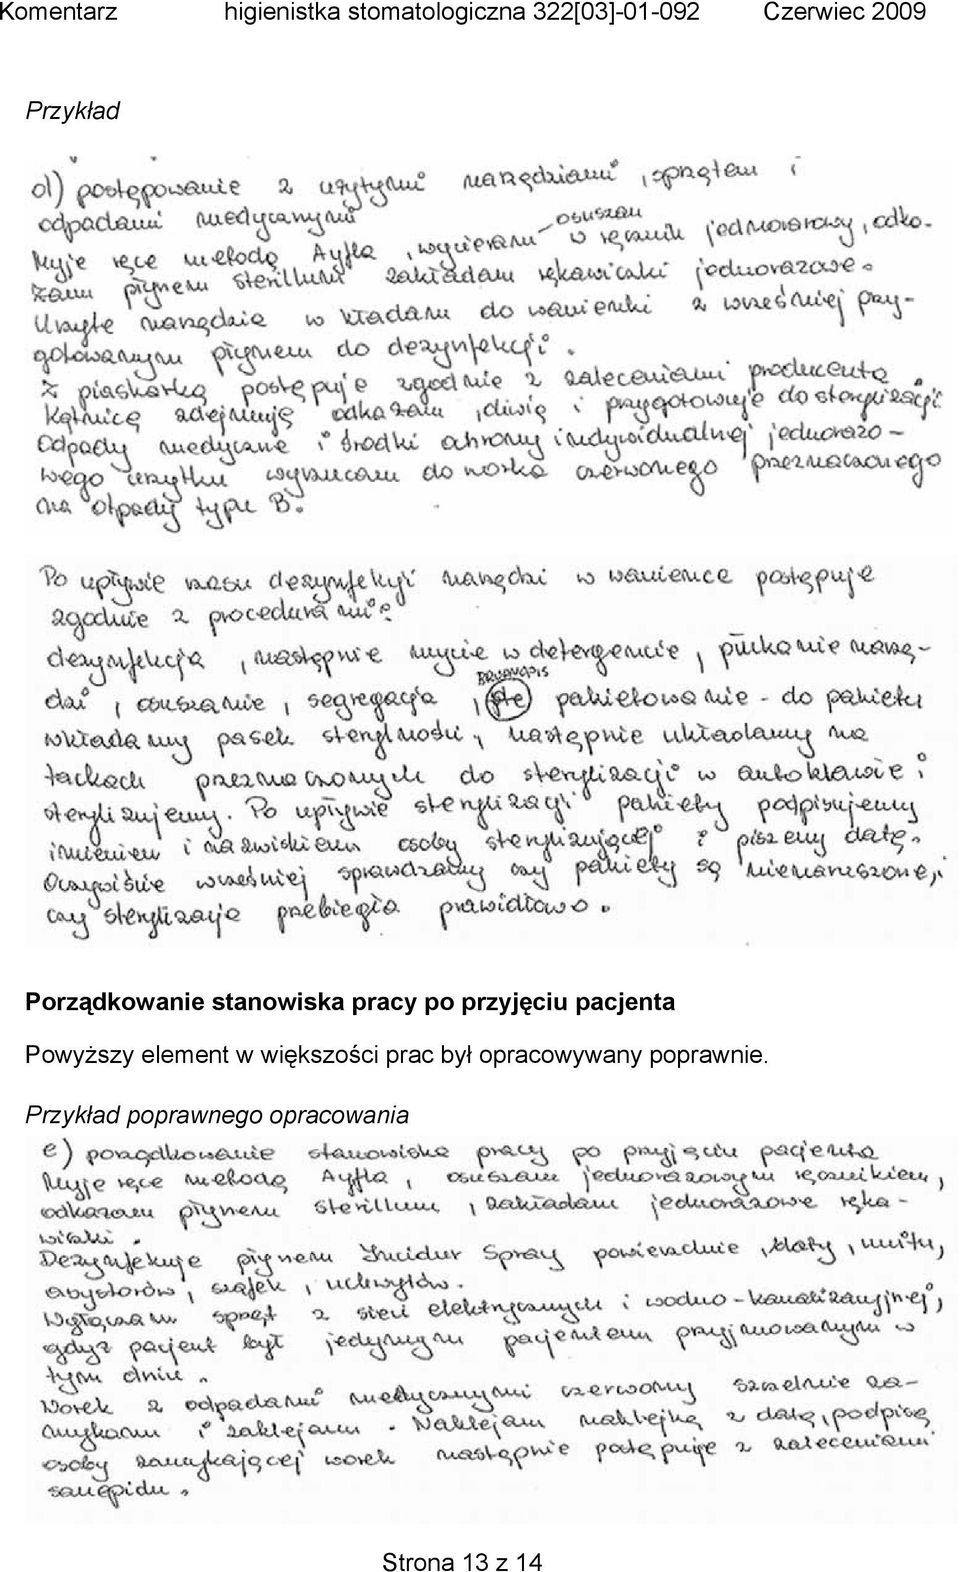 Komentarz higienistka stomatologiczna 322[03]-01-092 Czerwiec 2009
Przykład
d) postępowanie z użytymi narzędziami, sprzętem i
odpadami medycznymi
Myję ręce metodą Ayfla, wycieram - osuszam w ręcznik jednorazowy, odka-
żam płynem sterillium zakładam rękawiczki jednorazowe.
Użyte narzędzia wkładam do wanienki z wcześniej przy-
gotowanym płynem do dezynfekcji.
Z piaskarką postępuję zgodnie z zaleceniami producenta.
Kątnicę zdejmuję odkażam, oliwię i przygotowuję do sterylizacji.
Odpady medyczne i środki ochrony indywidualnej jednorazo-
wego użytku wyrzucam do worka czerwonego przeznaczonego
na otpady typu B.
Po upływie czasu dezynfekcji narzędzi w wanience postępuję
zgodnie z procedurami:
dezynfekcja, następnie mycie w detergencie, płukanie narzę-
dzi, osuszanie, segregacja, BRUDNOPIS pakietowanie - do pakietu
wkładamy pasek sterylności, następnie układamy na
tackach przeznaczonych do sterylizacji w autoklawie i
sterylizujemy. Po upływie sterylizacji pakiety podpisujemy
imieniem i nazwiskiem osoby sterylizującej i piszemy datę.
Oczywiście wcześniej sprawdzamy czy pakiety są nienaruszone,
czy sterylizacja przebiegła prawidłowo.
Porządkowanie stanowiska pracy po przyjęciu pacjenta
Powyższy element w większości prac był opracowywany poprawnie.
Przykład poprawnego opracowania
e) porządkowanie stanowiska pracy po przyjęciu pacjenta
Myję ręce metodą Ayfla, osuszam jednorazowym ręcznikiem,
odkażam płynem sterillium, zakładam jednorazowe ręka-
wiczki.
Dezynfekuję płynem Incidur Spray powierzchnie, blaty, unitu,
asystorów, szafek, uchwytów.
Wyłączam sprzęt z sieci elektrycznych i wodno-kanalizacyjnej,
gdyż pacjent był jedynym pacjentem przyjmowanym w
tym dniu.
Worek z odpadami medycznymi czerwony szczelnie za-
mykam i zaklejam. Naklejam naklejkę z datą, podpisę
osoby zamykającej worek następnie postępuję z zaleceniami
sanepidu.
Strona 13 z 14